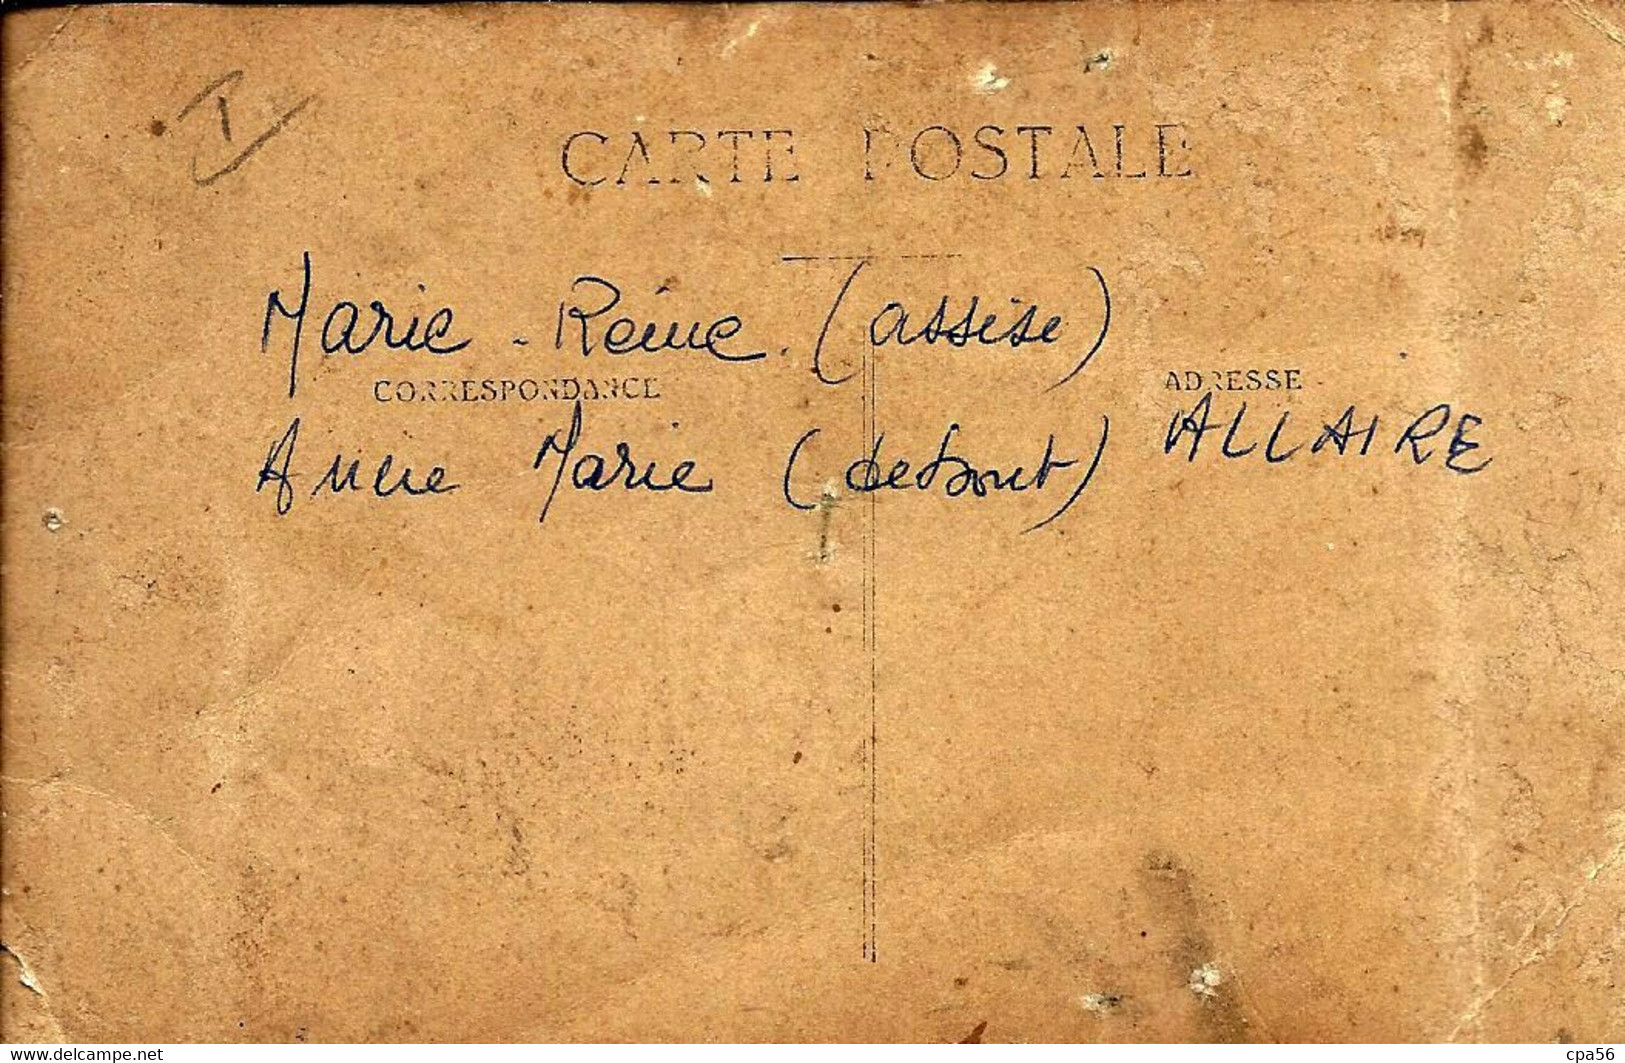 I
CARTE POSTALE
Marie - Reine (assise)
CORRESPONDANCE
ADRESSE
Anne Marie (debout) ALLAIRE
delcampe.net
cpa56